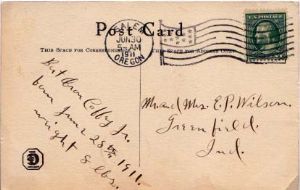 Post Card
SALEM
JUN 30
5-AM
1911
OREGON
THIS SPACE FOR CORRESPONDENCE
THIS SPACE FOR ADDRESS ONLY
born June 28th 1911.
weight 8 lbs.
Mr. and Mrs. E. P. Wilson.
Greenfield,
Ind.